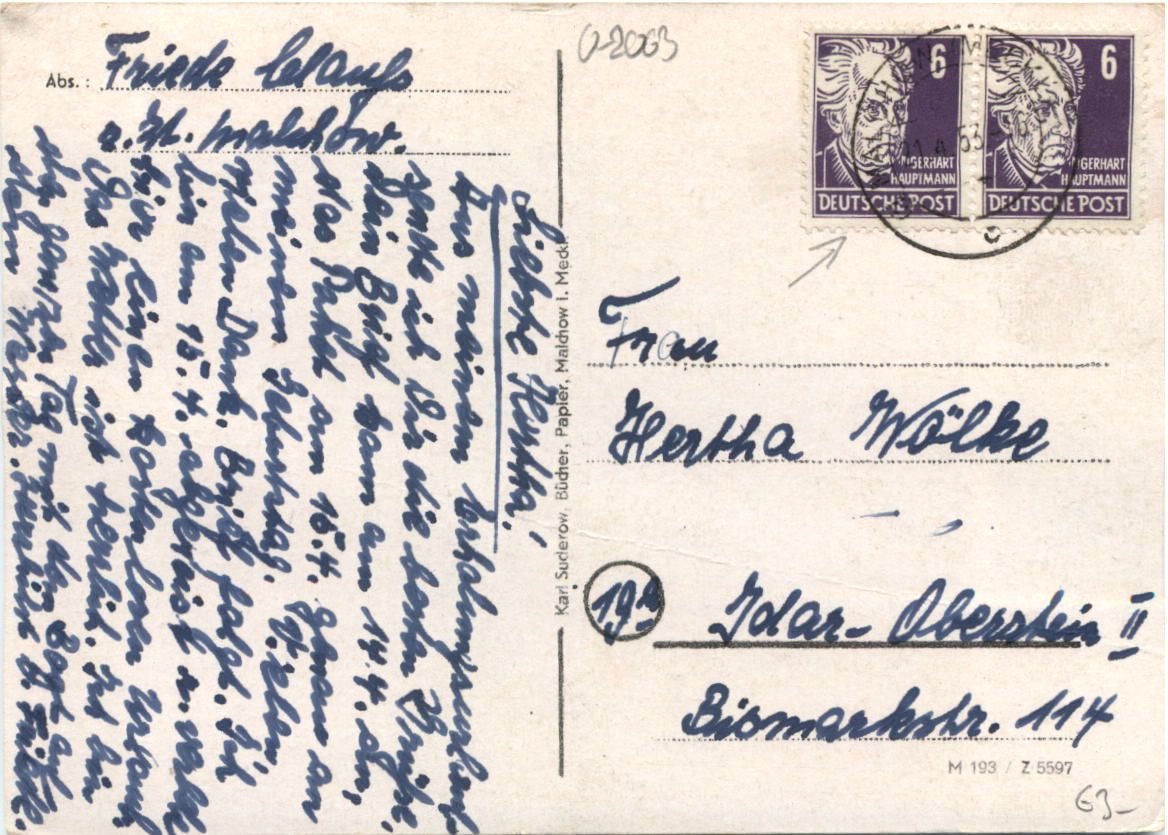 Abs.: Friede Clauß
z. Zt. Malchow.
Liebste Hertha!
Aus meinem Erholungsurlaub
sende ich Dir die besten Grüße.
Dein Brief kam am 14.4. an,
das Paket am 16.4. genau an
meinem Geburtstag. Vielen,
vielen Dank. Brief folgt. Ich
bin am 15.4. abgereist u. verlebe
hier einen kostenlosen Urlaub.
Das Wetter ist herrlich. Ich bin
den ganzen Tag mit dem Boot auf
dem Wasser. Herzlichst Friede.
Karl Suderow, Bücher, Papier, Malchow i. Meckl.
0-2063
6
GERHART
HAUPTMANN
DEUTSCHE POST
6
GERHART
HAUPTMANN
DEUTSCHE POST
MALCHOW
53
c
Frau
Hertha Wölke
19a
Idar-Oberstein II
Bismarkstr. 114
M 193 / Z 5597
63-